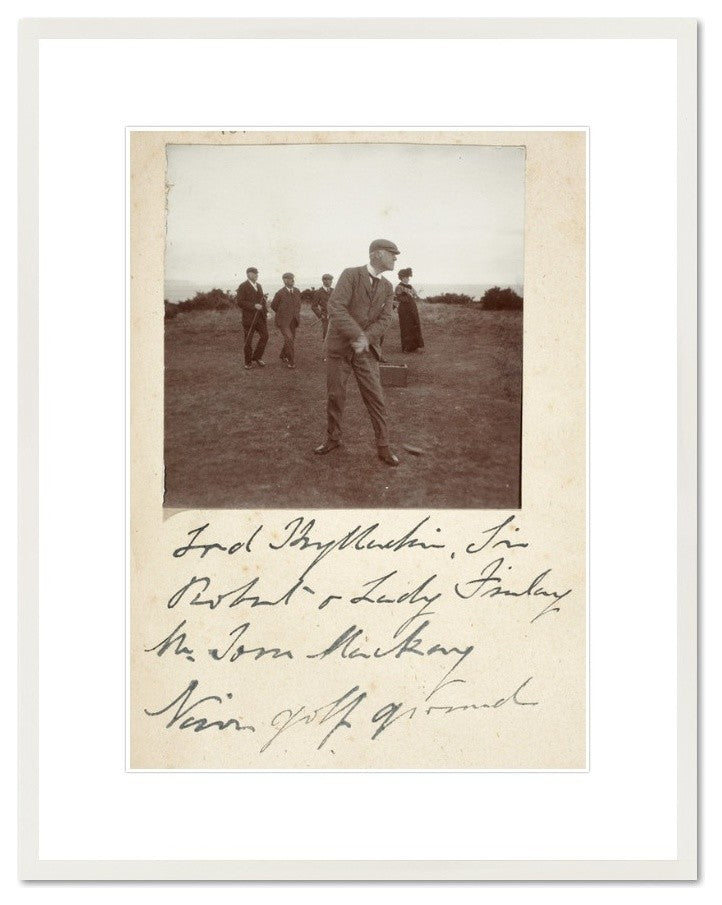 Lord Kyllachie, Sir
Robert & Lady Finlay
Mr. Tom Mackay
Nairn golf ground